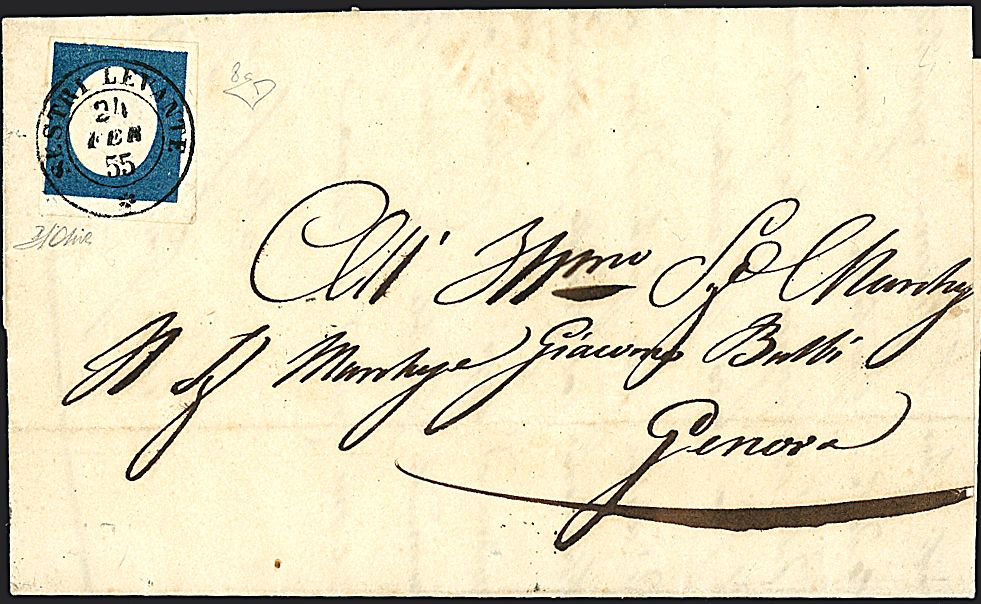 SESTRI LEVANTE
24
FEB
55
8a
All' Illmo Sig Marchese
Il Sig Marchese Giacomo Balbi
Genova